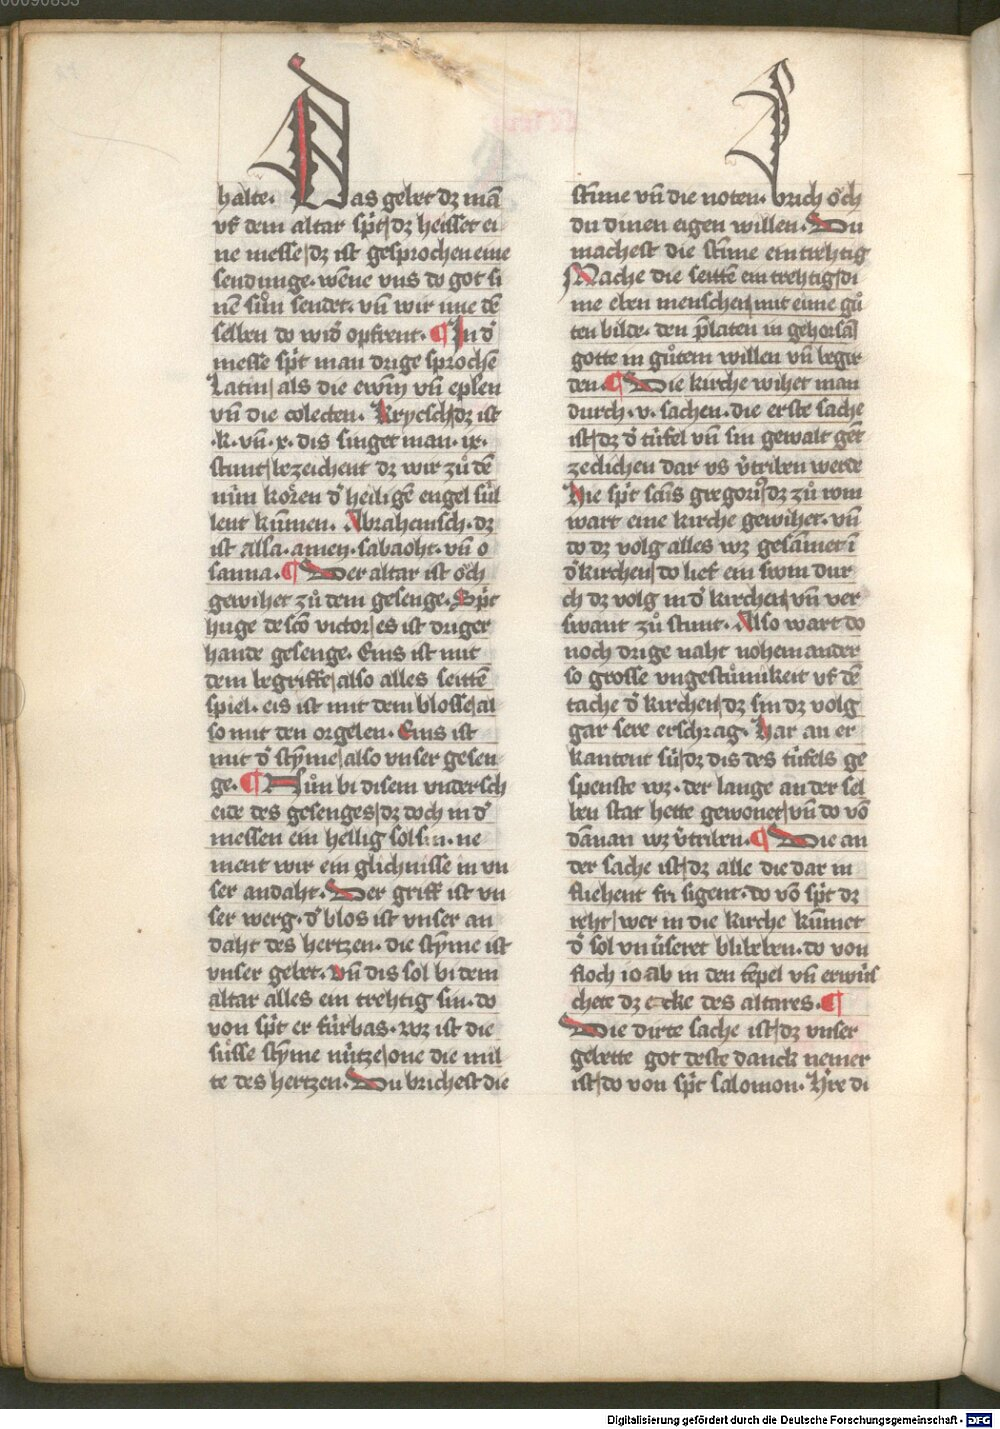 halte. Das gebet dz mā
vf dem altar sp̄t dz heisset ei
ne messe dz ist gesprochen eine
sendunge. wēne vns do got si
nē sůn sendet. vn̄ wir ime dē
selben do wid̓ opfrent. ¶ In d̓
messe sp̄t man drige sprochē
Latin als die ewm vn̄ eplen
vn̄ die colecten. Kryesch dz ist
.k. vn̄ .x. dis singet man .ix.
stunt bezeichent dz wir zů dē
nún kören d̓ heiligē engel súl
lent kūmen. Abrahemsch. dz
ist Alla. amen. sabaoht. vn̄ o
sanna. ¶ Der altar ist öch
gewihet zů dem gesenge. Sp̄t
huge de sc̄o victor es ist driger
hande gesenge. Eins ist mit
dem begriffe also alles seittē
spiel. eis ist mit dem blosse al
so mit den orgelen. Eins ist
mit d̓ styme also vnser gesen
ge. ¶ Nůn bi disem vndersch
eide des gesenges dz doch in d̓
messen ein hellig sol sin. ne
ment wir ein glichnisse in vn
ser andaht. Der griff ist vn
ser werg. d̓ blos ist vnser an
daht des hertzen. die styme ist
vnser gebet. vn̄ dis sol bi dem
altar alles ein trehtig sin. do
von sp̄t er fúrbas. wz ist die
süsse styme nútze one die mil
te des hertzen. Du brichest die
stime vn̄ die noten. brich öch
du dinen eigen willen. Du
machest die stime eintrehtig
Mache die seittē ein trehtig di
me eben menschen mit eime gů
ten bilde. den p̄laten in gehorsā
gotte in gůtem willen vn̄ beger
den. ¶ Die kirche wihet man
durch .v. sachen. die erste sache
ist dz d̓ túfel vn̄ sin gewalt gēt
zeclichen dar vs v̓triben werde
Hie sp̄t sc̄us gregori9 dz zů win
wart eine kirche gewihet. vn̄
do dz volg alles wz gesāmet ī
d̓ kirchen do lief ein swin dur
ch dz volg in d̓ kirchen vn̄ ver
swant zů stunt. Also wart do
noch drige naht noheinander
so grosse vngestůmikeit vf dē
tache d̓ kirchen dz sin dz volg
gar sere erschrag. Har an er
kantent sú dz dis des túfels ge
spenste wz. der lange an der sel
ben stat hette gewonet vn̄ do vō
dānan wz v̓triben. ¶ Die an
der sache ist dz alle die dar in
fliehent fri sigent. do vō sp̄t dz
reht wer in die kirche kūmet
d̓ sol vn úseret blibeben. do von
floch ioab in den tēpel vn̄ erwús
chete dz ecke des altares. ¶
Die dirte sache ist dz vnser
gebette got deste danck nemer
ist do von sp̄t salomon. H̓re di
Digitalisierung gefördert durch die Deutsche Forschungsgemeinschaft - DFG